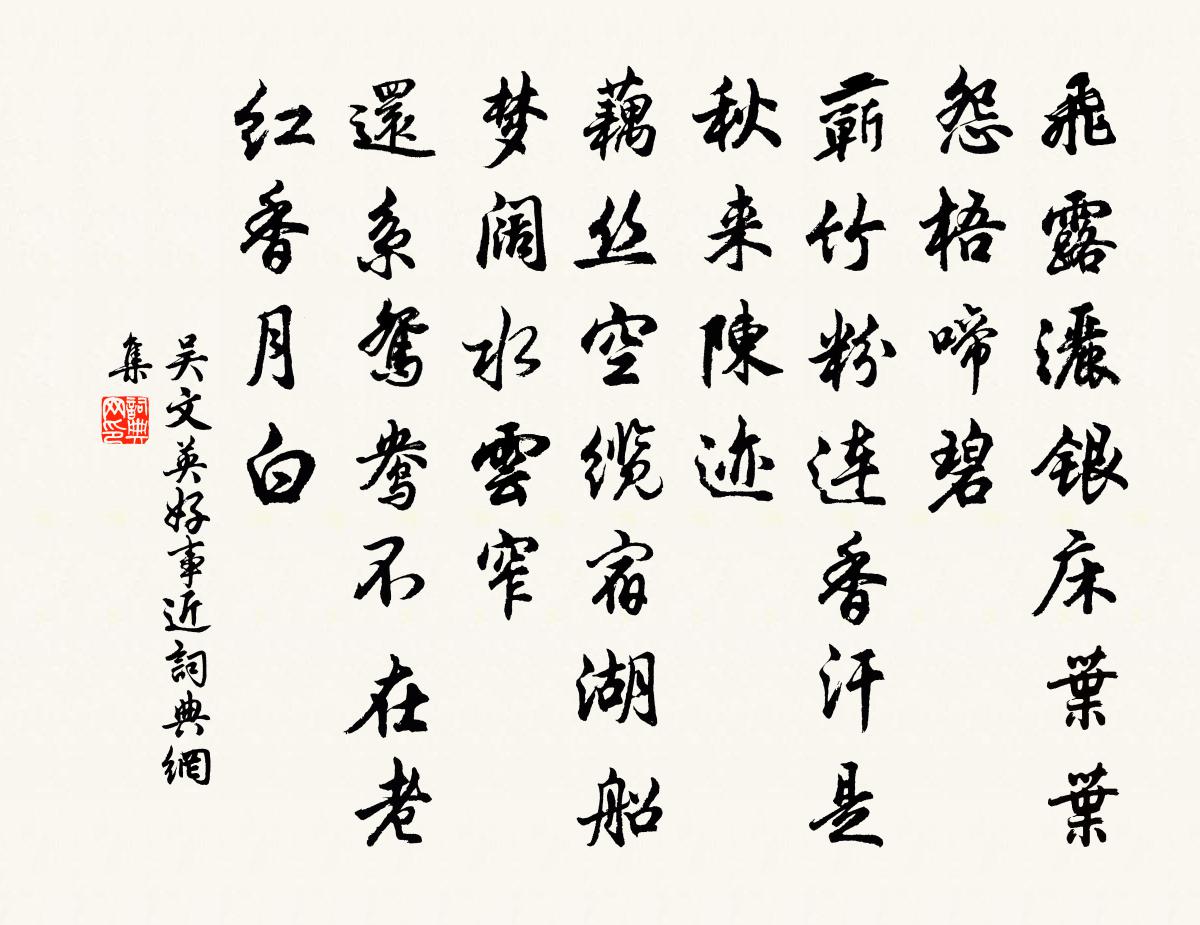 飛露灑銀床葉葉
怨梧啼碧
蘄竹粉連香汗是
秋来陳迹
藕丝空缆宿湖船
梦阔水雲窄
還系鴛鴦不在老
紅香月白
吴文英好事近詞典網
集
詞典
网印